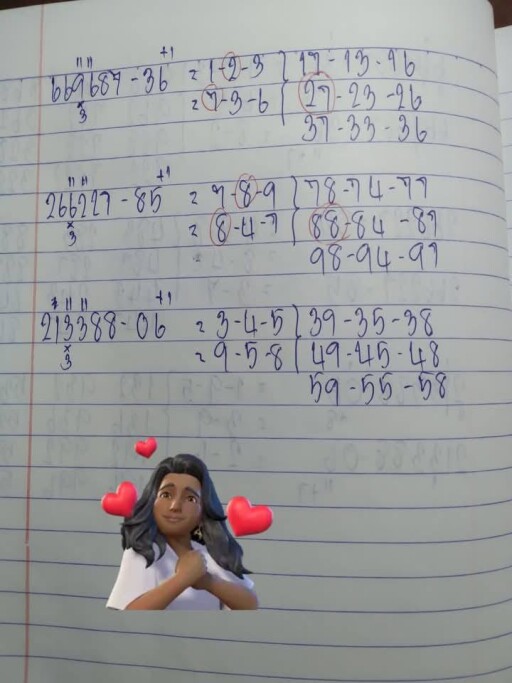 " " +1
669687-36 = 1-2-3 } 17-13-16
x = 7-3-6 { 27-23-26
3 37-33-36
" " +1
266227-85 = 7-8-9 } 78-74-77
x = 8-4-7 { 88-84-87
3 98-94-97
" " +1
213388-06 = 3-4-5 } 39-35-38
x = 9-5-8 { 49-45-48
3 59-55-58